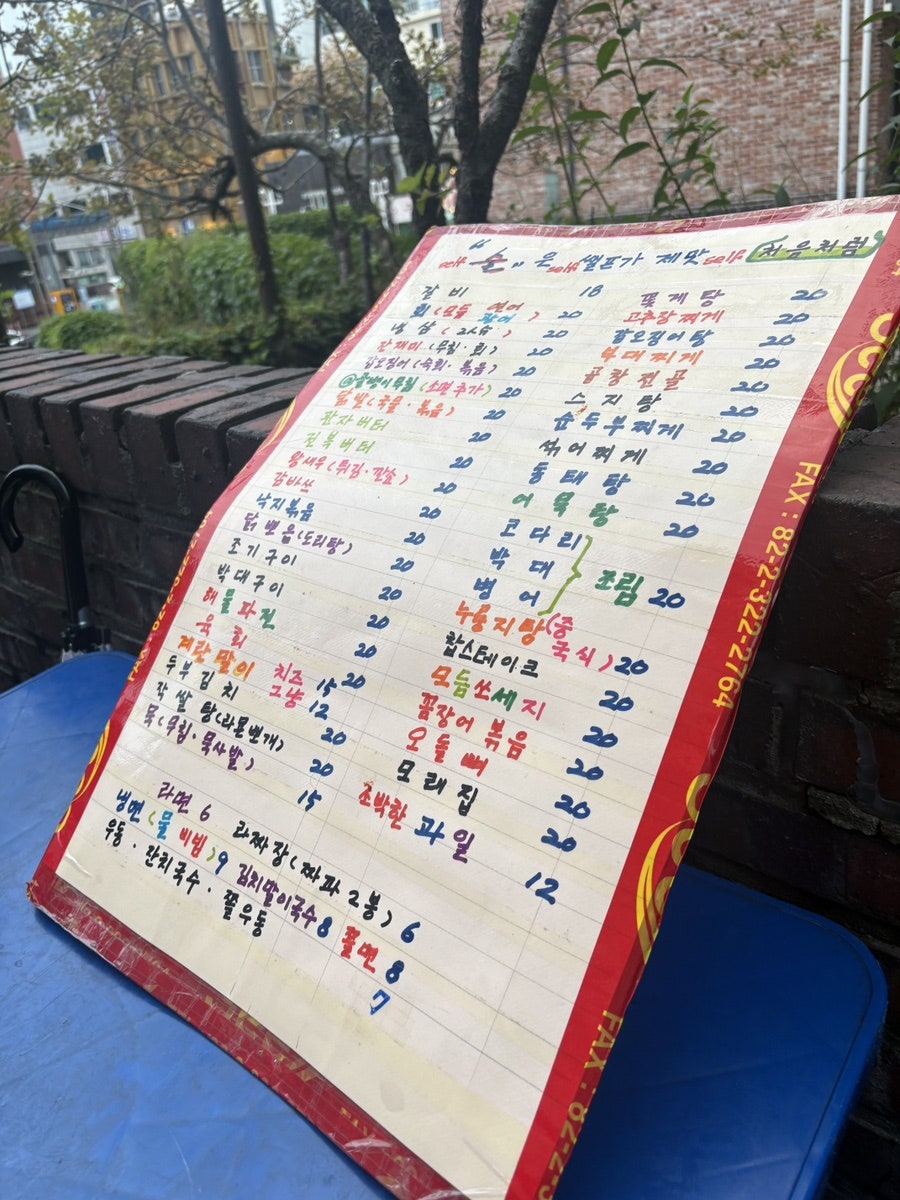 self "술"은 self 셀프가 제맛 self 처음처럼
갈비 18
회(모듬 연어 광어) 20
냉삼(2人分) 20
간재미(무침·회) 20
갑오징어(숙회·볶음) 20
@골뱅이무침(소면추가) 20
닭발(국물·볶음) 20
관자버터 20
전복버터 20
왕새우(튀김·간장) 20
감바쓰 20
낙지볶음 20
닭볶음(도리탕) 20
조기구이 20
박대구이 20
해물파전 20
육회 20
계란말이 치즈 15
그냥 12
두부김치 20
작살탕(라몬뽀개) 20
묵(무침·묵사발) 15
꽃게탕 20
고추장찌게 20
갑오징어탕 20
부대찌게 20
곱창전골 20
스지탕 20
순두부찌게 20
섞어찌게 20
동태탕 20
어묵탕 20
코다리
박대
병어
조림 20
누룽지탕(중국식) 20
찹스테이크 20
모듬쏘세지 20
꼼장어볶음 20
오돌뼈 20
모래집 20
조박한 과일 12
라면 6 라짜장(짜파2봉) 6
냉면(물 비빔) 9 김치말이국수 8 쫄면 8
우동·잔치국수·쫄우동 7
FAX : 82-2-322-2764
FAX : 82-2-